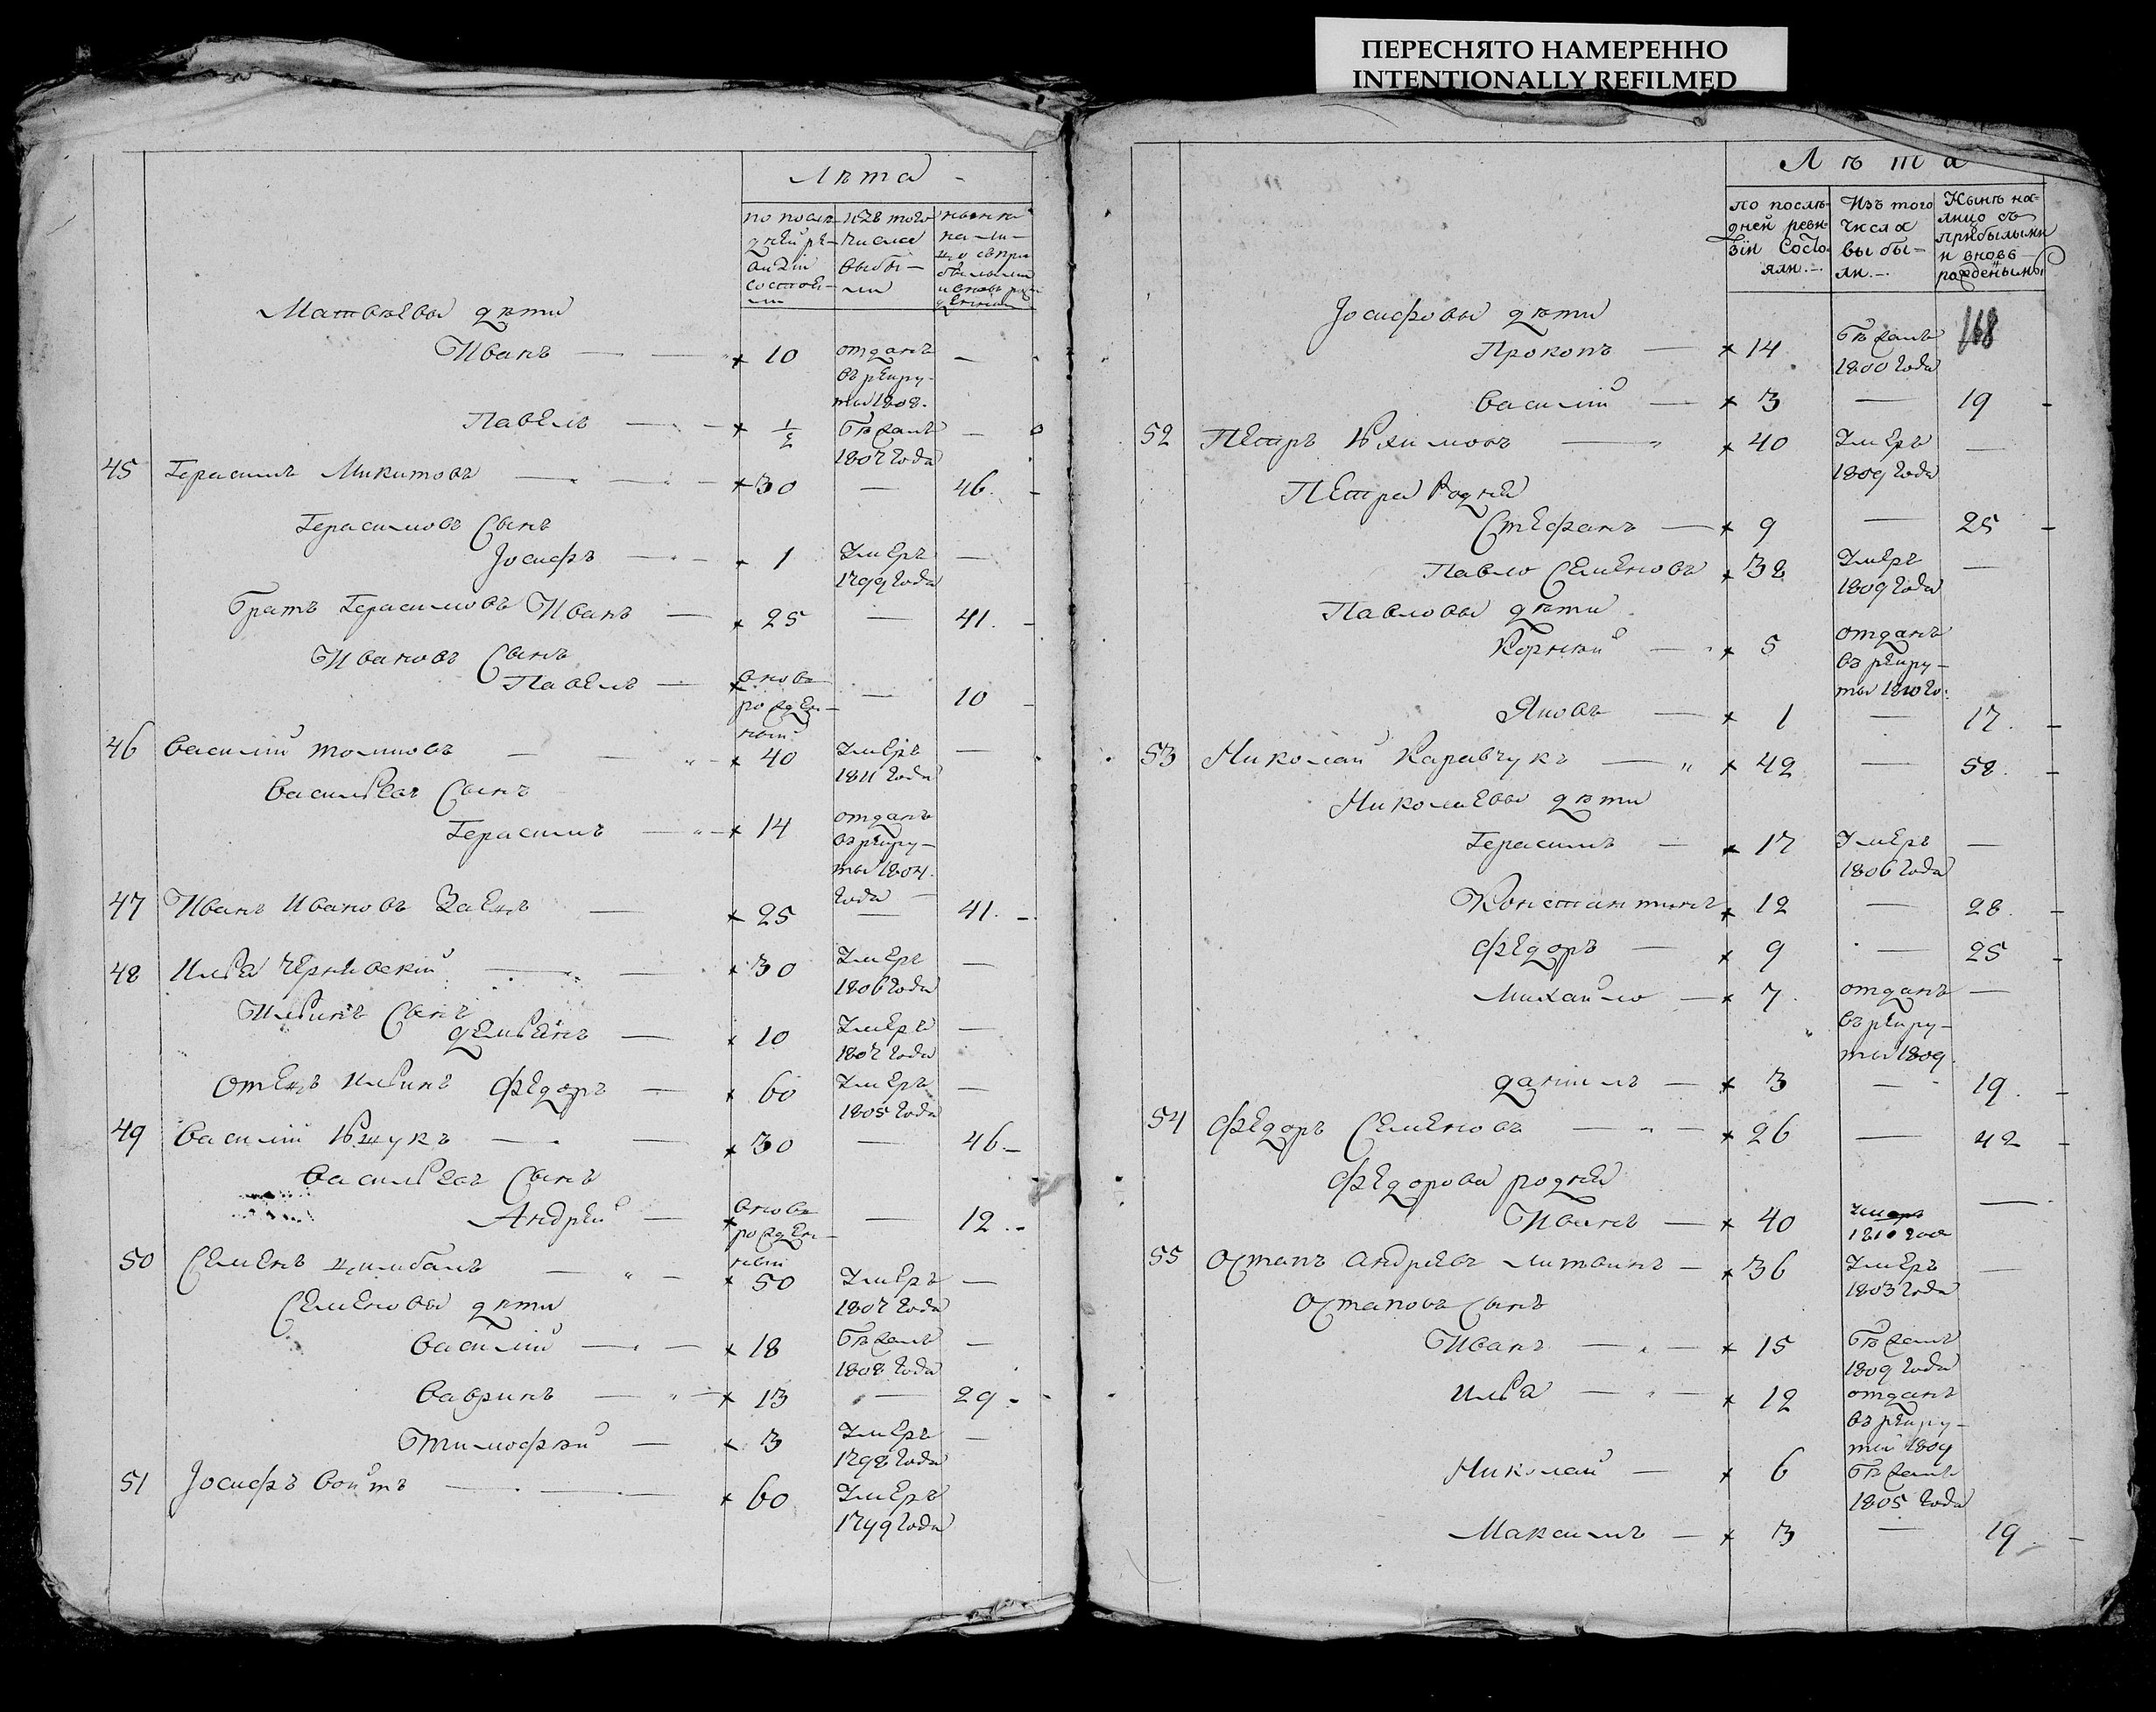 ПЕРЕСНЯТО НАМЕРЕННО
INTENTIONALLY REFILMED
Лѣта
по послѣ- изъ того нынѣ
дней ре- числа на ли-
визіи выбы- цо съ при
состоя- ли былыми
ли и вновь рож
денными
Матвѣевы дѣти
Иванъ — 10 отданъ —
въ рекру-
ты 1808.
Павелъ — 1/2 бѣжалъ —
1807 года
45 Герасимъ Микитовъ — 30 — 46.
Герасимовъ Сынъ
Іосифъ — 1 Умеръ —
1799 года
Братъ Герасимовъ Иванъ — 25 — 41.
Ивановъ Сынъ
Павелъ — вновь — 10
рожден-
ный
46 Василій — 40 Умеръ —
1811 года
Васильевъ Сынъ
Герасимъ — 14 отданъ
въ рекру-
ты 1804.
года —
47 Иванъ Ивановъ Заецъ — 25 — 41.
48 Илья Чернѣвскій — 30 Умеръ —
1806 года
Ильинъ Сынъ
Демьянъ — 10 Умеръ —
1807 года
Отецъ Ильинъ Федоръ — 60 Умеръ —
1805 года
49 Василій — 30 — 46.
Васильевъ Сынъ
Андрей — вновь — 12.
рожден-
ный
50 Семенъ Цимбалъ — 50 Умеръ —
1807 года
Семеновы дѣти
Василій — 18 бѣжалъ —
1808 года
Гавринъ — 13 — 29.
Тимофѣй — 3 Умеръ —
1798 года
51 Іосифъ Войтъ — 60 Умеръ
1799 года
Лѣта
по послѣ- Изъ того Нынѣ на-
дней реви- числа лицо съ
зіи Состо- выбы- прибылыми
яли. ли. и вновь
рожденными
168
Іосифовы дѣти
Прокопъ — 14 бѣжалъ
1800 года
Василій — 3 — 19
52 Петръ — 40 Умеръ —
1809 года
Петра Родня
Стефанъ — 9 — 25
Павло Семеновъ 38 Умеръ —
1809 года
Павловы дѣти
Корнѣй — 5 отданъ
въ рекру-
ты 1810 го.
Яковъ — 1 — 17.
53 Николай Каравчукъ — 42 — 58.
Николаевы дѣти
Герасимъ — 17 Умеръ —
1806 года
Константинъ 12 — 28.
Федоръ — 9 — 25
Михайло — 7. отданъ —
въ рекру-
ты 1809.
Данилъ — 3 — 19.
54 Федоръ Семеновъ — 26 — 42
Федорова родня
Иванъ — 40 умеръ —
1810 года
55 Остапъ Андреевъ Литвинъ — 36 Умеръ —
1803 года
Остаповъ Сынъ
Иванъ — 15 бѣжалъ
1809 года
Илья — 12 отданъ
въ рекру-
ты 1809
Николай — 6 бѣжалъ
1805 года
Максимъ — 3 — 19.